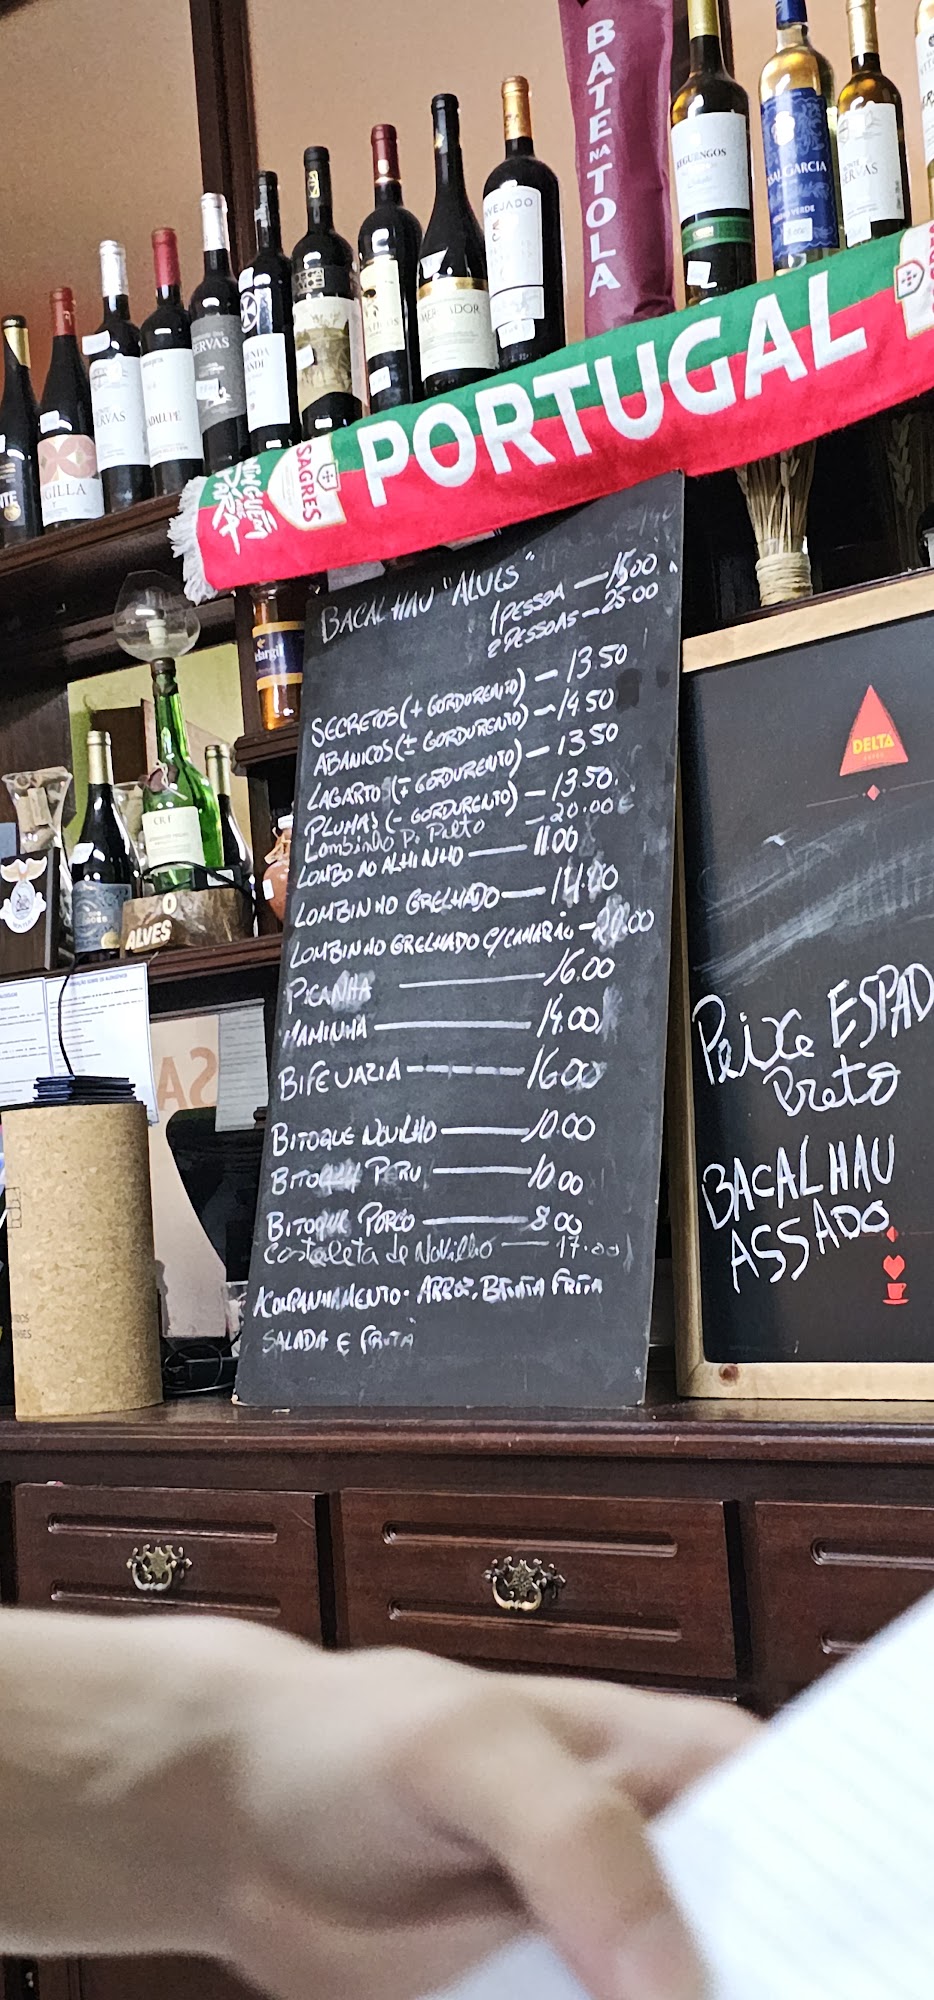 BATE
NA
TOLA
REGUENGOS
CASAL GARCIA
VINHO VERDE
MONTE
SERVAS
PORTUGAL
SAGRES
NINGUÉM
PÁRA
BACALHAU "ALVES"
1 PESSOA — 15,00
2 PESSOAS — 25.00
SECRETOS (+ GORDURENTO) — 13.50
ABANICOS (± GORDURENTO) — 14.50
LAGARTO (∓ GORDURENTO) — 13.50
PLUMAS (- GORDURENTO) — 13.50
Lombinho P. Preto — 20.00€
LOMBO AO ALHINHO — 11.00
LOMBINHO GRELHADO — 14.00
LOMBINHO GRELHADO C/CAMARÃO — 20.00
PICANHA — 16.00
MAMINHA — 14.00
BIFE VAZIA — 16.00
BITOQUE NOVILHO — 10.00
BITOQUE PERU — 10.00
BITOQUE PORCO — 8.00
Costeleta de Novilho — 17.00
ACOMPANHAMENTO. ARROZ, BATATA FRITA
SALADA E FRUTA
DELTA
Peixe ESPAD
Preto
BACALHAU
ASSADO
ALVES
CRF